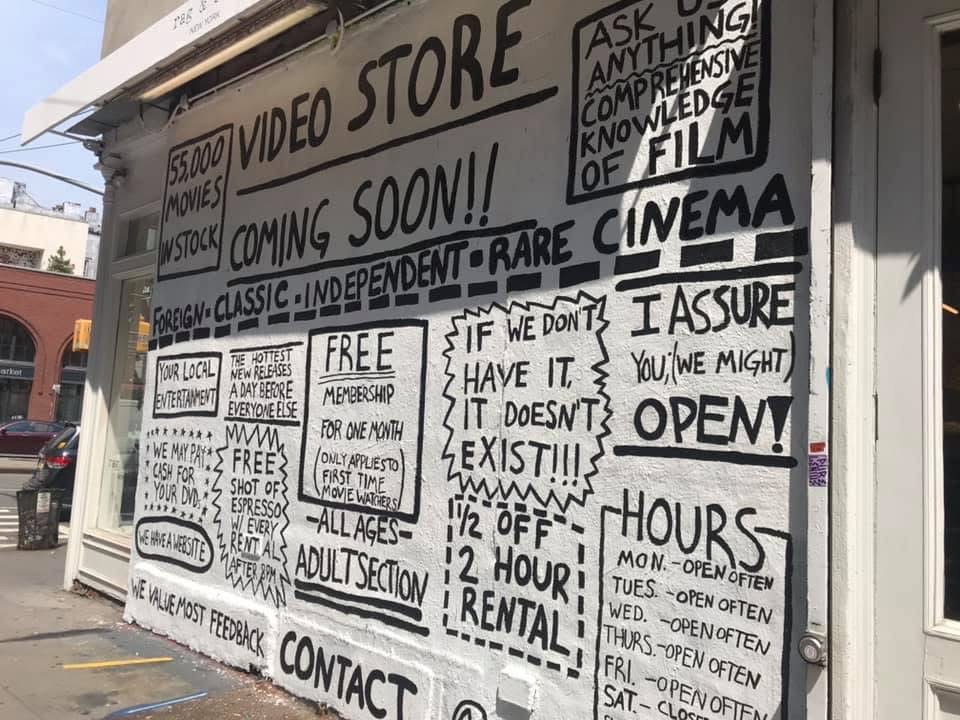 rag &
NEW YORK
55,000
MOVIES
IN STOCK
VIDEO STORE
COMING SOON!!
ASK US
ANYTHING!
COMPREHENSIVE
KNOWLEDGE
OF FILM
FOREIGN - CLASSIC - INDEPENDENT - RARE CINEMA
YOUR LOCAL
ENTERTAINMENT
THE HOTTEST
NEW RELEASES
A DAY BEFORE
EVERYONE ELSE
FREE
MEMBERSHIP
FOR ONE MONTH
(ONLY APPLIES TO
FIRST TIME
MOVIE WATCHERS)
IF WE DON'T
HAVE IT,
IT DOESN'T
EXIST!!!
I ASSURE
YOU; (WE MIGHT)
OPEN!
WE MAY PAY
CASH FOR
YOUR DVD
FREE
SHOT OF
ESPRESSO
W/ EVERY
RENTAL
AFTER 8PM
WE HAVE A WEBSITE
-ALL AGES-
ADULT SECTION
1/2 OFF
2 HOUR
RENTAL
HOURS
MON. - OPEN OFTEN
TUES. - OPEN OFTEN
WED. - OPEN OFTEN
THURS. - OPEN OFTEN
FRI. - OPEN OFTEN
SAT. - CLOSE
WE VALUE MOST FEEDBACK
CONTACT
@